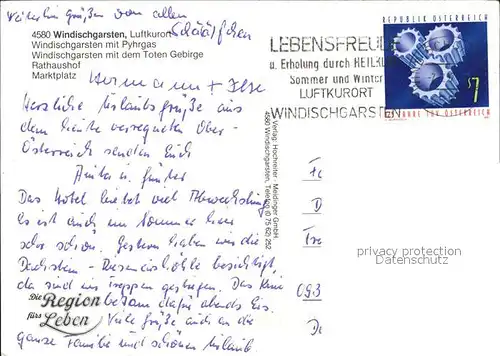 Weiterhin Grüßen von allen
4580 Windischgarsten, Luftkurort
Windischgarsten mit Pyhrgas
Windischgarsten mit dem Toten Gebirge
Rathaushof
Marktplatz
Hermann + Ilse
Herzliche Urlaubsgrüße aus
dem heute verregneten Ober-
Österreich senden Euch
Anita u. Günter
Das Hotel bietet viel Abwechslung
Es ist auch im Sommer hier
sehr schön. Gestern haben wir die
Dachstein - Rieseneishöhle besichtigt,
da sind wir Treppen gestiegen. Das Knie
bekam dafür abends Eis.
Viele Grüße auch an die
ganze Familie und schönen Urlaub.
Die Region
fürs Leben
Verlag: Hochreiter - Meidinger GmbH
4580 Windischgarsten, Telefon (0 75 62) 252
LEBENSFREUDE
u. Erholung durch HEILKL
Sommer und Winter
LUFTKURORT
WINDISCHGARSTEN
REPUBLIK ÖSTERREICH
S7
JAHRE ÖSTERREICH
privacy protection
Datenschutz